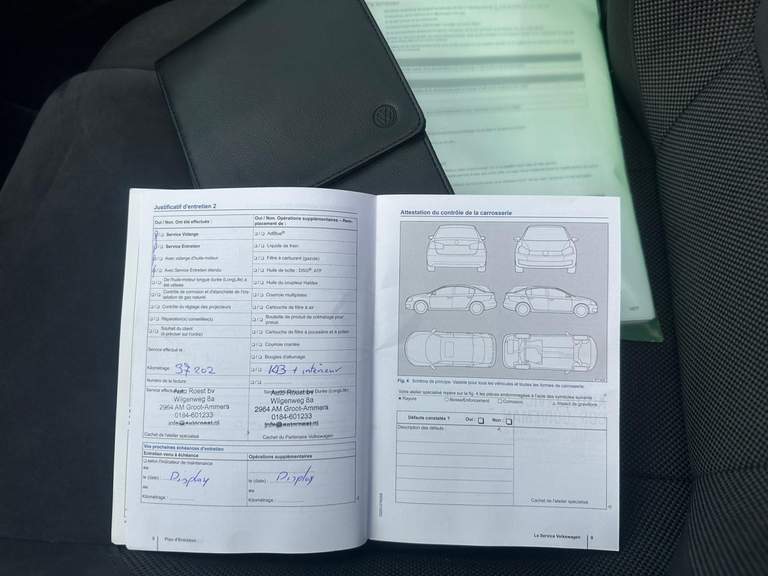 Justificatif d'entretien 2
Oui / Non. Ont été effectués :
Service Vidange
Service Entretien
Avec vidange d'huile-moteur
Avec Service Entretien étendu
De l'huile-moteur longue durée (LongLife) a
été utilisée
Contrôle de corrosion et d'étanchéité de l'ins-
tallation de gaz naturel
Contrôle du réglage des projecteurs
Réparation(s) conseillée(s)
Souhait du client
(à préciser sur l'ordre)
Service effectué le
Kilométrage : 37 202
Numéro de la facture
Auto Roest bv
Wilgenweg 8a
2964 AM Groot-Ammers
0184-601233
Cachet de l'atelier spécialisé
Oui / Non. Opérations supplémentaires – Rem-
placement de :
AdBlue®
Liquide de frein
Filtre à carburant (gazole)
Huile de boîte : DSG® ATF
Huile du coupleur Haldex
Courroie multipiste
Cartouche de filtre à air
Bouteille de produit de colmatage pour
pneus
Cartouche de filtre à poussière et à pollen
Courroie crantée
Bougies d'allumage
+ intérieur
Auto Roest bv
Wilgenweg 8a
2964 AM Groot-Ammers
0184-601233
Cachet du Partenaire Volkswagen
Vos prochaines échéances d'entretien
Entretien venu à échéance
selon l'indicateur de maintenance
ou
le (date) : Display
ou
Kilométrage :
Opérations supplémentaires
le (date) : Display
ou
Kilométrage :
8 Plan d'Entretien
Attestation du contrôle de la carrosserie
Fig. 4 Schéma de principe. Valable pour tous les véhicules et toutes les formes de carrosserie.
Votre atelier spécialisé repère sur la fig. 4 les pièces endommagées à l'aide des symboles suivants :
Rayure
Bosse/Enfoncement
Corrosion
Impact de gravillons
Défauts constatés ? Oui : Non :
Description des défauts
Cachet de l'atelier spécialisé
Le Service Volkswagen 9